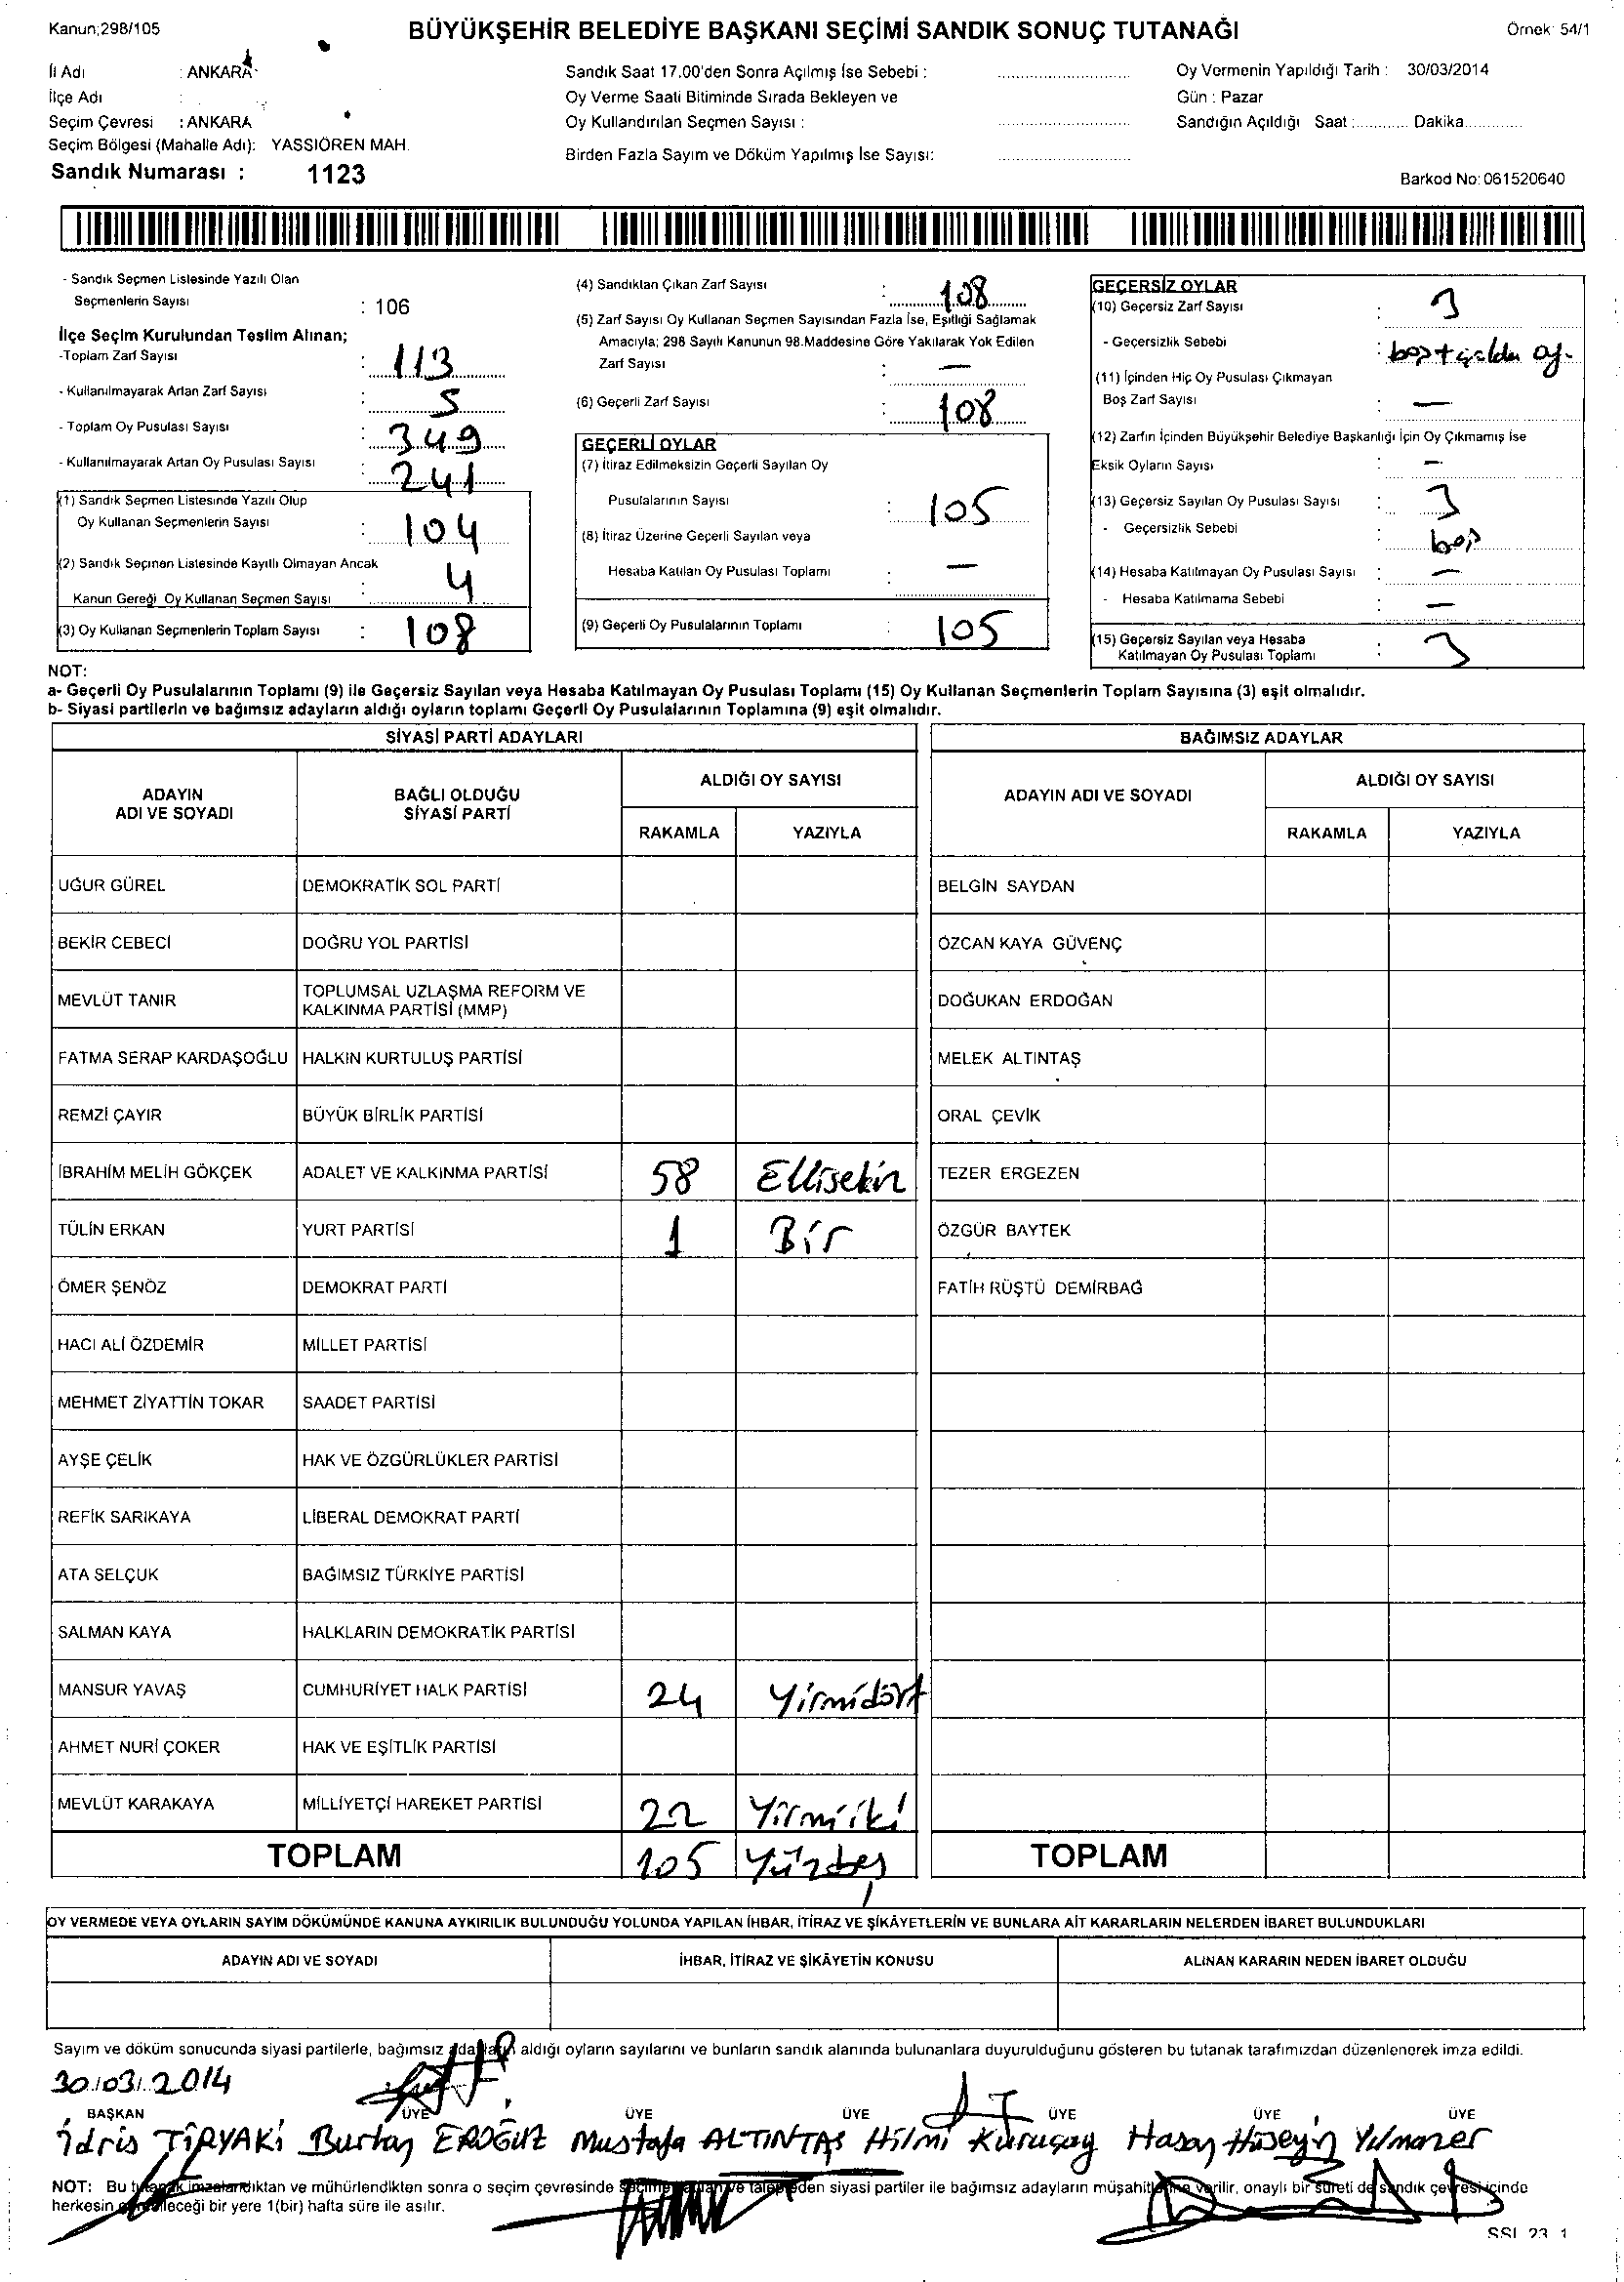 Kanun;298/105 BÜYÜKŞEHİR BELEDİYE BAŞKANI SEÇİMİ SANDIK SONUÇ TUTANAĞI Örnek: 54/1
İl Adı : ANKARA
İlçe Adı :
Seçim Çevresi : ANKARA
Seçim Bölgesi (Mahalle Adı): YASSIÖREN MAH.
Sandık Numarası : 1123
Sandık Saat 17.00'den Sonra Açılmış İse Sebebi :
Oy Verme Saati Bitiminde Sırada Bekleyen ve
Oy Kullandırılan Seçmen Sayısı :
Birden Fazla Sayım ve Döküm Yapılmış İse Sayısı:
Oy Vermenin Yapıldığı Tarih : 30/03/2014
Gün : Pazar
Sandığın Açıldığı Saat :............ Dakika.............
Barkod No: 061520640
- Sandık Seçmen Listesinde Yazılı Olan
Seçmenlerin Sayısı : 106
İlçe Seçim Kurulundan Teslim Alınan;
-Toplam Zarf Sayısı : 113
- Kullanılmayarak Artan Zarf Sayısı : 5
- Toplam Oy Pusulası Sayısı : 349
- Kullanılmayarak Artan Oy Pusulası Sayısı : 241
(1) Sandık Seçmen Listesinde Yazılı Olup
Oy Kullanan Seçmenlerin Sayısı : 104
(2) Sandık Seçmen Listesinde Kayıtlı Olmayan Ancak
Kanun Gereği Oy Kullanan Seçmen Sayısı : 4
(3) Oy Kullanan Seçmenlerin Toplam Sayısı : 108
(4) Sandıktan Çıkan Zarf Sayısı : 108
(5) Zarf Sayısı Oy Kullanan Seçmen Sayısından Fazla İse, Eşitliği Sağlamak
Amacıyla; 298 Sayılı Kanunun 98.Maddesine Göre Yakılarak Yok Edilen
Zarf Sayısı : —
(6) Geçerli Zarf Sayısı : 108
GEÇERLİ OYLAR
(7) İtiraz Edilmeksizin Geçerli Sayılan Oy
Pusulalarının Sayısı : 105
(8) İtiraz Üzerine Geçerli Sayılan veya
Hesaba Katılan Oy Pusulası Toplamı : —
(9) Geçerli Oy Pusulalarının Toplamı : 105
GEÇERSİZ OYLAR
(10) Geçersiz Zarf Sayısı : 3
- Geçersizlik Sebebi : boş+ oy.
(11) İçinden Hiç Oy Pusulası Çıkmayan
Boş Zarf Sayısı : —
(12) Zarfın İçinden Büyükşehir Belediye Başkanlığı İçin Oy Çıkmamış İse
Eksik Oyların Sayısı : —
(13) Geçersiz Sayılan Oy Pusulası Sayısı : 3
- Geçersizlik Sebebi : boş
(14) Hesaba Katılmayan Oy Pusulası Sayısı : —
- Hesaba Katılmama Sebebi : —
(15) Geçersiz Sayılan veya Hesaba
Katılmayan Oy Pusulası Toplamı : 3
NOT:
a- Geçerli Oy Pusulalarının Toplamı (9) ile Geçersiz Sayılan veya Hesaba Katılmayan Oy Pusulası Toplamı (15) Oy Kullanan Seçmenlerin Toplam Sayısına (3) eşit olmalıdır.
b- Siyasi partilerin ve bağımsız adayların aldığı oyların toplamı Geçerli Oy Pusulalarının Toplamına (9) eşit olmalıdır.
SİYASİ PARTİ ADAYLARI BAĞIMSIZ ADAYLAR
ADAYIN ADI VE SOYADI BAĞLI OLDUĞU SİYASİ PARTİ ALDIĞI OY SAYISI ADAYIN ADI VE SOYADI ALDIĞI OY SAYISI
RAKAMLA YAZIYLA RAKAMLA YAZIYLA
UĞUR GÜREL DEMOKRATİK SOL PARTİ BELGİN SAYDAN
BEKİR CEBECİ DOĞRU YOL PARTİSİ ÖZCAN KAYA GÜVENÇ
MEVLÜT TANIR TOPLUMSAL UZLAŞMA REFORM VE KALKINMA PARTİSİ (MMP) DOĞUKAN ERDOĞAN
FATMA SERAP KARDAŞOĞLU HALKIN KURTULUŞ PARTİSİ MELEK ALTINTAŞ
REMZİ ÇAYIR BÜYÜK BİRLİK PARTİSİ ORAL ÇEVİK
İBRAHİM MELİH GÖKÇEK ADALET VE KALKINMA PARTİSİ 58 Ellisekiz TEZER ERGEZEN
TÜLİN ERKAN YURT PARTİSİ 1 Bir ÖZGÜR BAYTEK
ÖMER ŞENÖZ DEMOKRAT PARTİ FATİH RÜŞTÜ DEMİRBAĞ
HACI ALİ ÖZDEMİR MİLLET PARTİSİ
MEHMET ZİYATTİN TOKAR SAADET PARTİSİ
AYŞE ÇELİK HAK VE ÖZGÜRLÜKLER PARTİSİ
REFİK SARIKAYA LİBERAL DEMOKRAT PARTİ
ATA SELÇUK BAĞIMSIZ TÜRKİYE PARTİSİ
SALMAN KAYA HALKLARIN DEMOKRATİK PARTİSİ
MANSUR YAVAŞ CUMHURİYET HALK PARTİSİ 24 Yirmidört
AHMET NURİ ÇOKER HAK VE EŞİTLİK PARTİSİ
MEVLÜT KARAKAYA MİLLİYETÇİ HAREKET PARTİSİ 22 Yirmiiki
TOPLAM 105 Yüzbeş TOPLAM
OY VERMEDE VEYA OYLARIN SAYIM DÖKÜMÜNDE KANUNA AYKIRILIK BULUNDUĞU YOLUNDA YAPILAN İHBAR, İTİRAZ VE ŞİKÂYETLERİN VE BUNLARA AİT KARARLARIN NELERDEN İBARET BULUNDUKLARI
ADAYIN ADI VE SOYADI İHBAR, İTİRAZ VE ŞİKÂYETİN KONUSU ALINAN KARARIN NEDEN İBARET OLDUĞU
Sayım ve döküm sonucunda siyasi partilerle, bağımsız adayların aldığı oyların sayılarını ve bunların sandık alanında bulunanlara duyurulduğunu gösteren bu tutanak tarafımızdan düzenlenerek imza edildi.
30/03/2014
BAŞKAN ÜYE ÜYE ÜYE ÜYE ÜYE ÜYE
İdris TİRYAKİ Burtay EROĞUZ Mustafa ALTINTAŞ Hilmi Kuruçay Hasan Hüseyin Yılmazer
NOT: Bu tutanak imzalandıktan ve mühürlendikten sonra o seçim çevresinde seçime katılan ve talep eden siyasi partiler ile bağımsız adayların müşahitlerine verilir, onaylı bir sureti de sandık çevresi içinde
herkesin görebileceği bir yere 1(bir) hafta süre ile asılır.
SSI 23 1